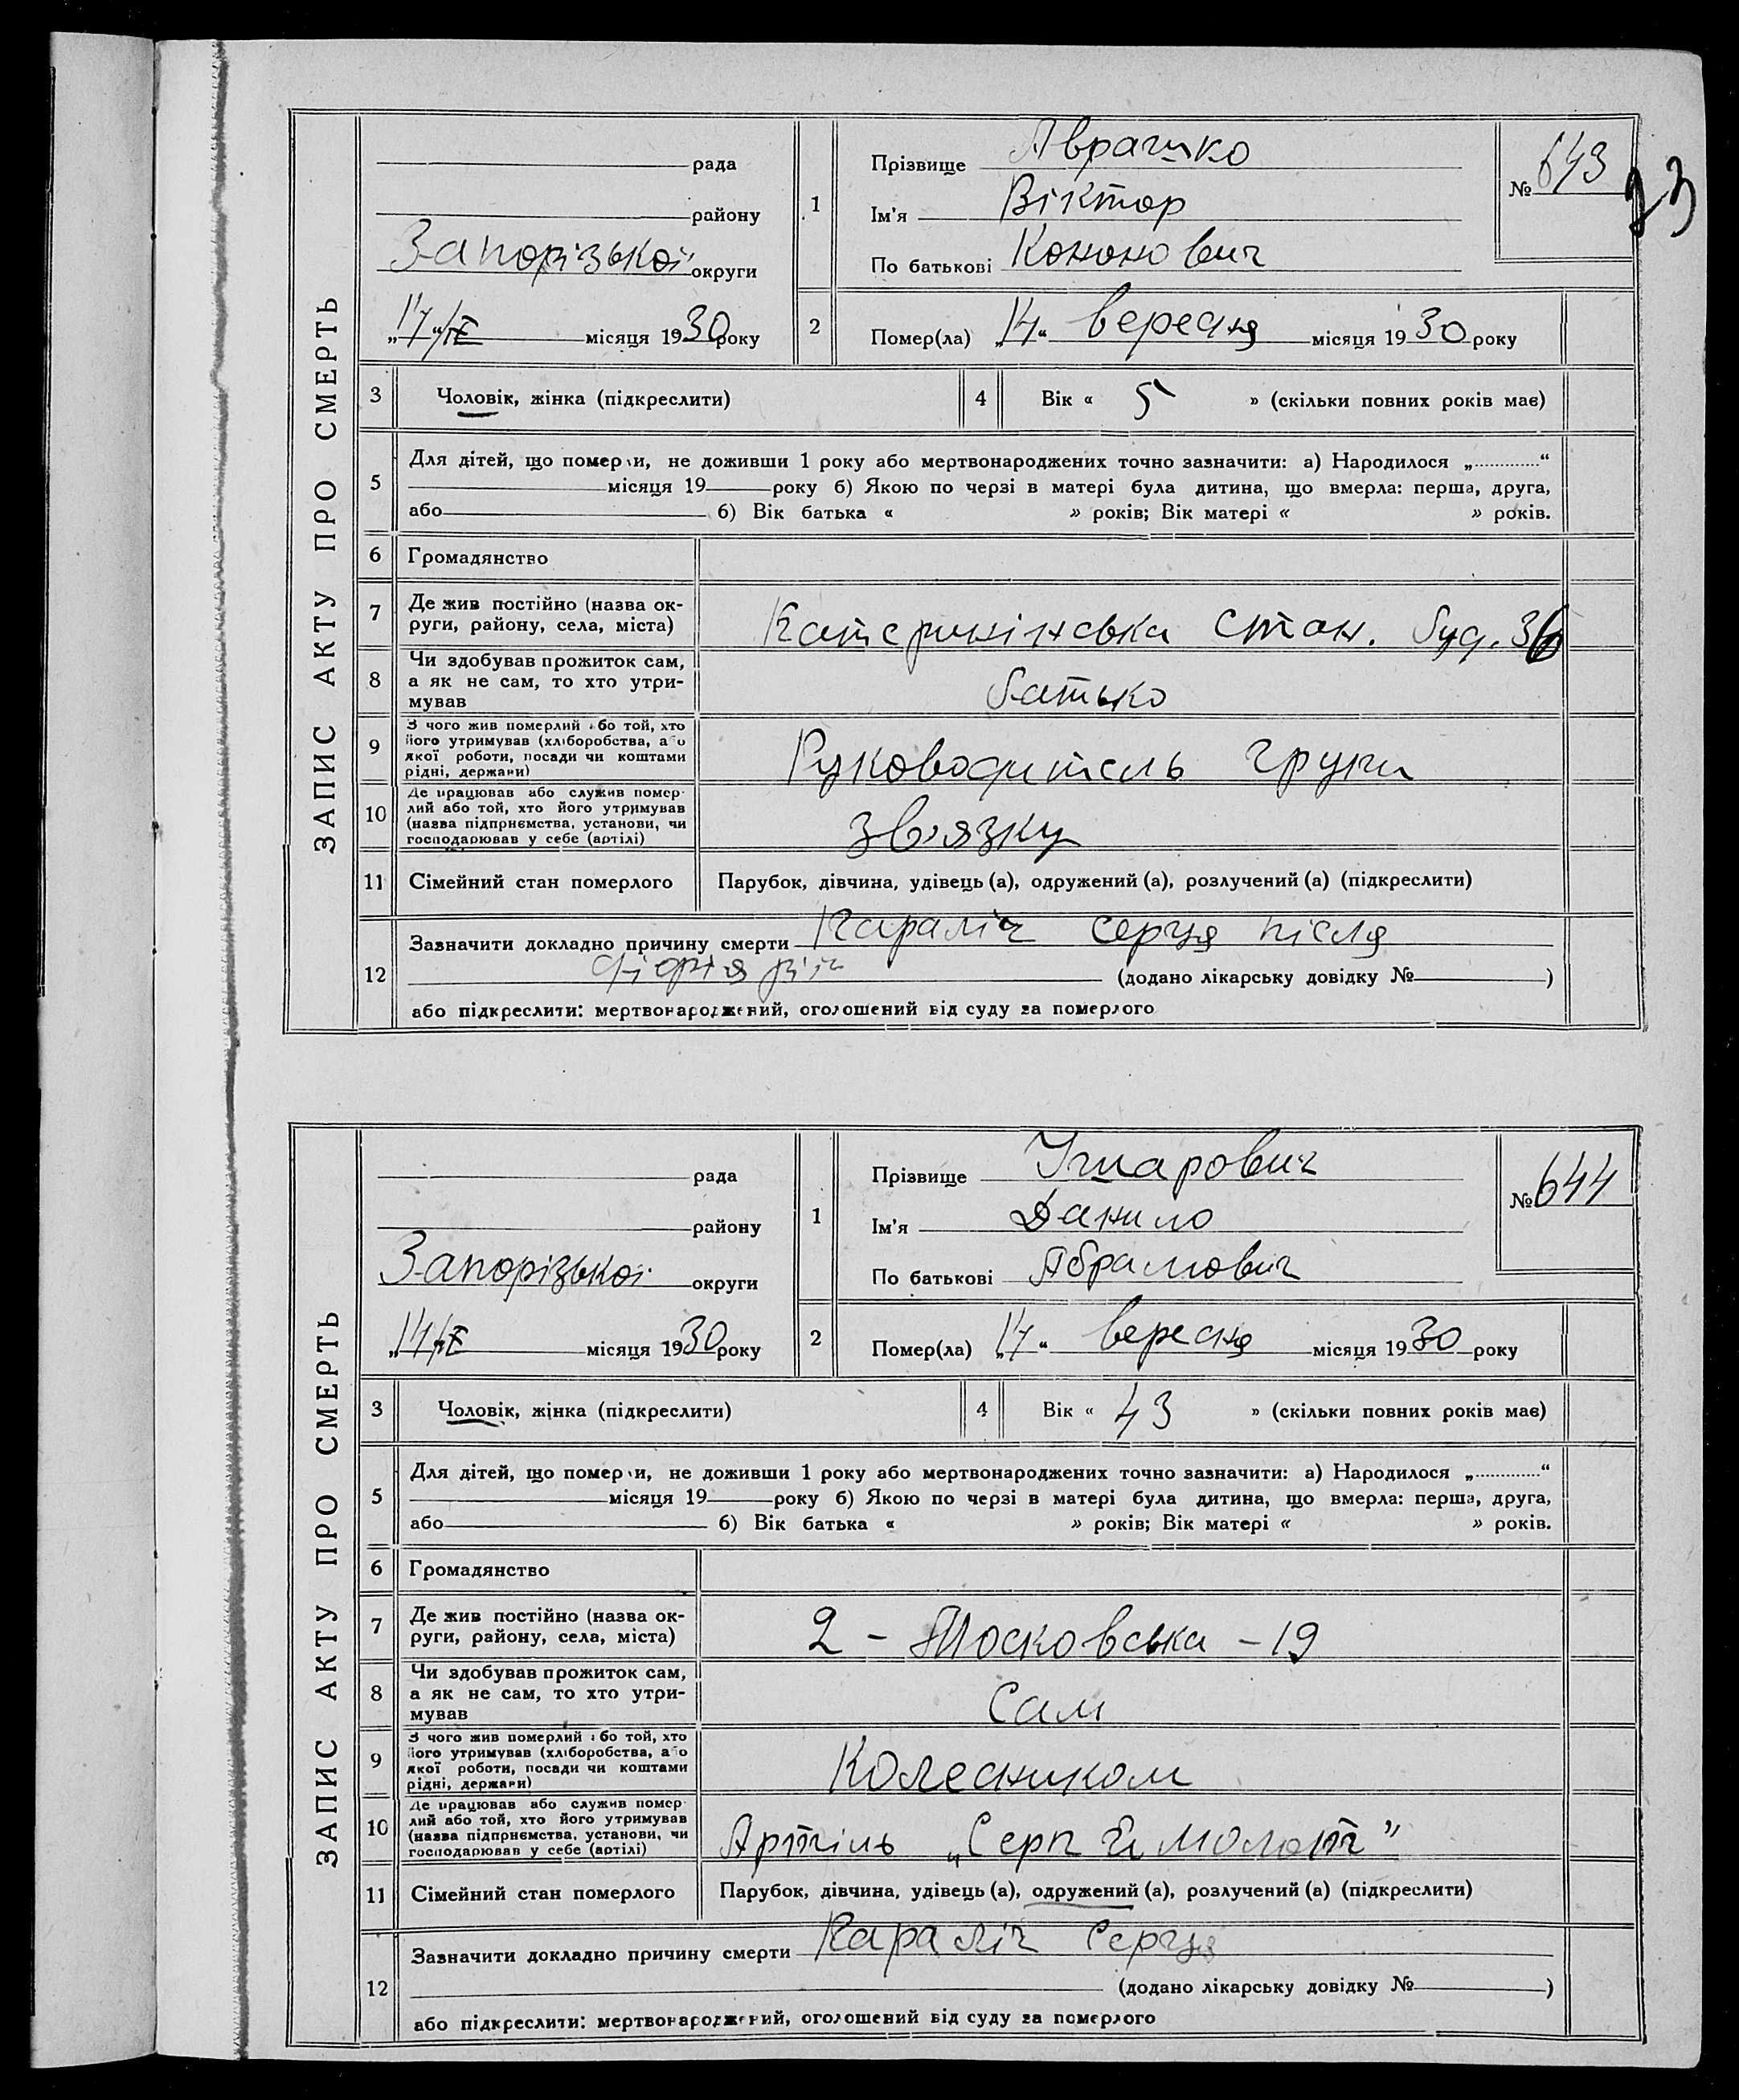 ЗАПИС АКТУ ПРО СМЕРТЬ
рада
району
Запорізької округи
„17“/IX місяця 1930 року
1
Прізвище Аврашко
Ім'я Віктор
По батькові Кононович
№ 643
23
2
Помер(ла) „14“ вересня місяця 1930 року
3 Чоловік, жінка (підкреслити)
4 Вік « 5 » (скільки повних років має)
5 Для дітей, що померли, не доживши 1 року або мертвонароджених точно зазначити: а) Народилося „ “
місяця 19 року б) Якою по черзі в матері була дитина, що вмерла: перша, друга,
або б) Вік батька « » років; Вік матері « » років.
6 Громадянство
7 Де жив постійно (назва ок-
руги, району, села, міста) Катеринінська стан. буд. 36
8 Чи здобував прожиток сам,
а як не сам, то хто утри-
мував батько
9 З чого жив померлий або той, хто
його утримував (хліборобства, або
якої роботи, посади чи коштами
рідні, держави) Руководитель групи
10 Де працював або служив помер-
лий або той, хто його утримував
(назва підприємства, установи, чи
господарював у себе (артілі) зв'язку
11 Сімейний стан померлого Парубок, дівчина, удівець (а), одружений (а), розлучений (а) (підкреслити)
12 Зазначити докладно причину смерти Параліч серця після
(додано лікарську довідку № )
або підкреслити: мертвонароджений, оголошений від суду за померлого
ЗАПИС АКТУ ПРО СМЕРТЬ
рада
району
Запорізької округи
місяця 1930 року
1
Прізвище
Ім'я Данило
По батькові Абрамович
№ 644
2
Помер(ла) вересня місяця 1930 року
3 Чоловік, жінка (підкреслити)
4 Вік « 43 » (скільки повних років має)
5 Для дітей, що померли, не доживши 1 року або мертвонароджених точно зазначити: а) Народилося „ “
місяця 19 року б) Якою по черзі в матері була дитина, що вмерла: перша, друга,
або б) Вік батька « » років; Вік матері « » років.
6 Громадянство
7 Де жив постійно (назва ок-
руги, району, села, міста) 2 - Московська - 19
8 Чи здобував прожиток сам,
а як не сам, то хто утри-
мував Сам
9 З чого жив померлий або той, хто
його утримував (хліборобства, або
якої роботи, посади чи коштами
рідні, держави) Колесником
10 Де працював або служив помер-
лий або той, хто його утримував
(назва підприємства, установи, чи
господарював у себе (артілі) Артіль „Серп й молот”
11 Сімейний стан померлого Парубок, дівчина, удівець (а), одружений (а), розлучений (а) (підкреслити)
12 Зазначити докладно причину смерти Параліч серця
(додано лікарську довідку № )
або підкреслити: мертвонароджений, оголошений від суду за померлого